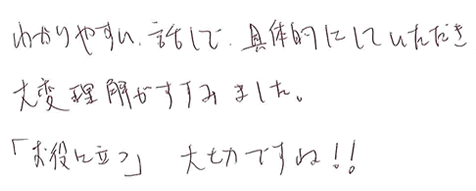 わかりやすい、話しで、具体的にしていただき
大変理解がすすみました。
「お役に立つ」 大切ですね!!